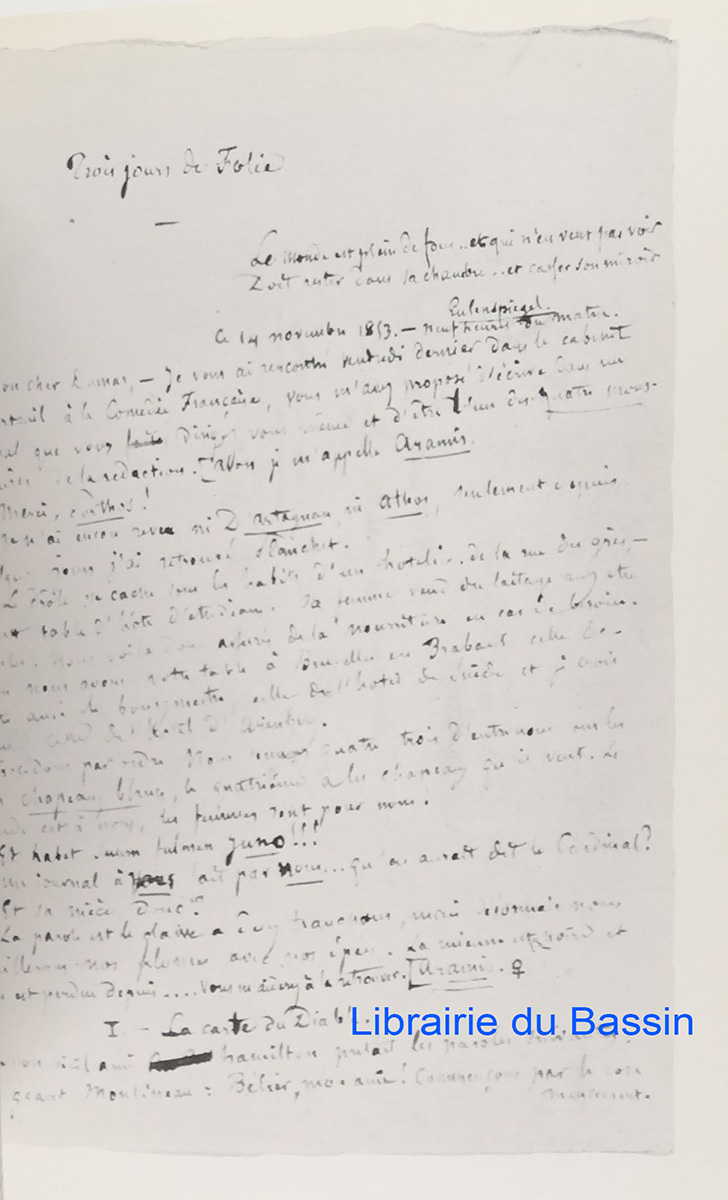 Trois jours de Folie
—
Le Monde est plein de fous.. et qui n'en veut pas voir
Doit rester dans sa chambre... et casser son miroir
Eulenspiegel.
Ce 14 novembre 1853. — neuf heures du matin.
on cher Dumas, — Je vous ai rencontré vendredi dernier dans le cabinet
à la Comédie Française, vous m'avez proposé d'écrire dans un
nal que vous dirigez vous même et d'être l'un des quatre mous-
de la rédaction. [Alors je m'appelle Aramis.
Merci, Porthos!
Je n'ai encore revu ni D'artagnan, ni Athos, seulement depuis
jours j'ai retrouvé Planchet.
Le drôle se cache sous les habits d'un hotelier de la rue du grès, —
table d'hôte d'étudians. Sa femme vend du laitage
nous voilà donc assurés de la nourriture en cas de besoin.
nous avons notre table à Bruxelles en Brabant celle de
amie le bourgmestre, celle de l'hotel de Suède et je crois
celle de l'hotel d'
par ordre Nous sommes quatre trois d'entre nous ont les
chapeaux blancs, le quatrième a les chapeaux qu'il veut. Le
est à nous, les femmes sont pour nous.
Et habet sum fulmen Juno!!!
un journal à nous fait par nous... qu'en aurait dit le Cardinal?
Et sa nièce donc?
La parole est le glaive a dit nous
nos plumes avec nos épées. La mienne est et
est perdue depuis.... Vous m'aiderez à la retrouver. [Aramis. ♀
I. — La carte du Diable.
on vieil ami hamilton prêtait les paroles suivantes
géant Moulineau : Bélier, mon ami! Commençons par le com
mencement.
Librairie du Bassin